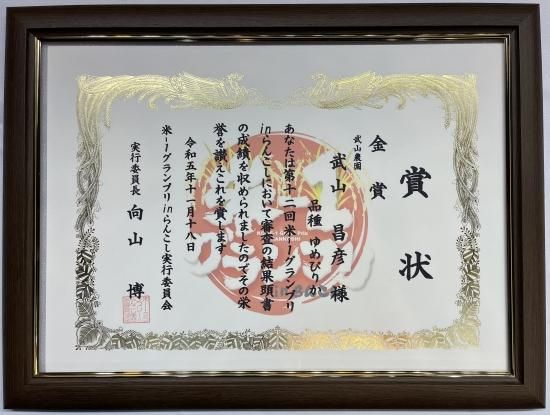 賞状
金賞
武山農園
武山 昌彦 様
品種 ゆめぴりか
あなたは第十二回米-1グランプリ
inらんこしにおいて審査の結果頭書
の成績を収められましたのでその栄
誉を讃えこれを賞します
令和五年十一月十八日
米-1グランプリinらんこし実行委員会
実行委員長 向山 博